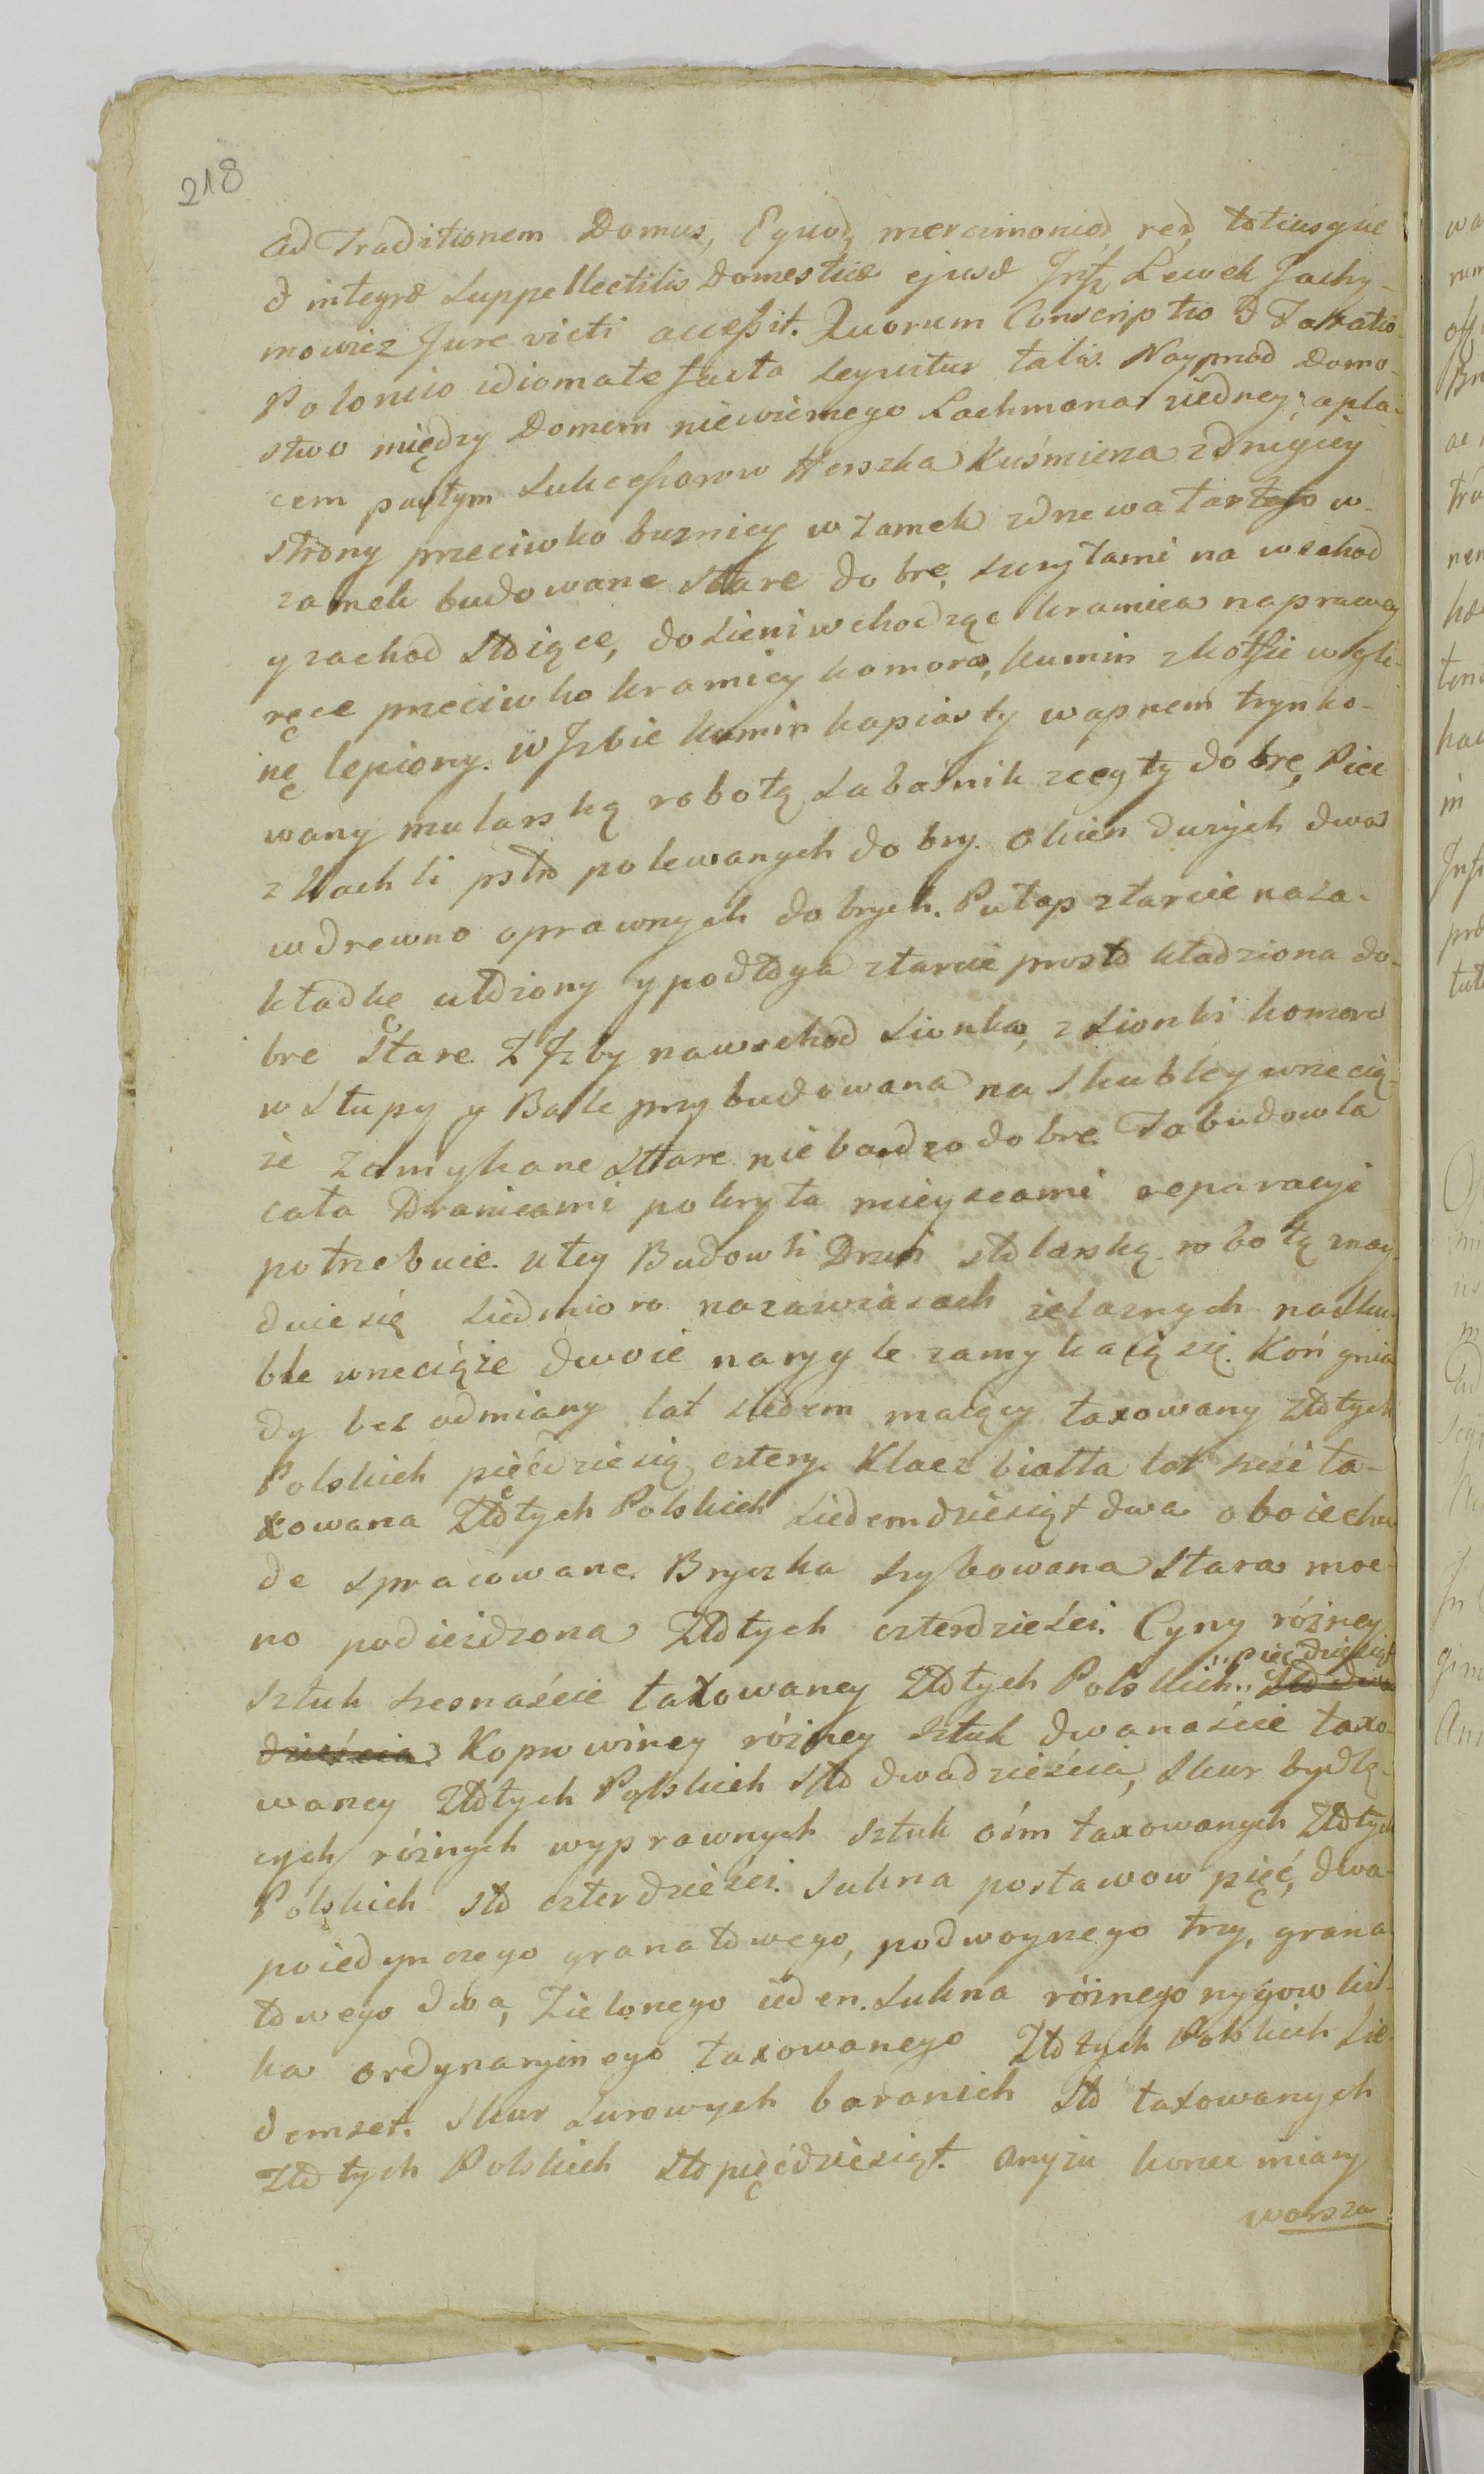 218
ad Traditionem Domus, Equor, mercimonior, rer, totiusque
& integræ Suppellectilis Domesticæ ejusd Infi Lewek Jachy-
mowicz Jure victi accessit. Quorum Conscriptio & Taxatio
Polonico idiomate facta sequitur talis. Nayprzod Domo-
stwo między Domem niewiernego Lachmana ziedney, a pla-
cem pustym Sukcessorow Herszka Kuśmierza zdrugiey
strony przeciwko buznicy w zamek zdrzewa tartego w-
zamek budowane stare dobre, szczytami na wschod
y zachod stoiące, do sieni wchodząc kramica naprawey
ręce przeciwko kramicy komora, kumin z kotli w gli-
nę lepiony. W Izbie kumin kapiasty wapnem trynko-
wany mularską robotą sabaśnik z cegły dobre, Piec
z kachli pstro polewanych dobry. Okien dużych dwa
w drewno oprawnych dobrych. Pułap z tarcic naza-
kładkę ułożony y podłoga z tarcic prosto kładziona do-
bre stare. Z Izby nawschod sionka, z sionki komora
w słupy y Bale przybudowana na skubley wrzecią-
że zamykane stare nie bardzo dobre. Ta budowla
cała Dranicami pokryta mieyscami reparacyi
potrzebuie. u tey Budowli Drzwi stolarską robotą znay-
duie się siedmioro nazawiasach żelaznych naskub-
ble wrzeciąże dwoie narygle zamykaią się. Koń gnia-
dy bez odmiany lat siedem maiący taxowany złotych
Polskich pięćdziesiąt cztery. Klacz biała lat sześć ta-
xowana Złotych Polskich siedemdziesiąt dwa oboie chu-
de spracowane. Bryczka szybowana stara moc-
no podieżdzona Złotych czterdzieści. Cyny różney
pięcdziesiąt
sztuk szesnaście taxowaney Złotych Polskich sto dwa
dzieścia Koprowiney różney sztuk dwanaście taxo-
waney Złotych Polskich sto dwadzieścia, skur bydlę-
cych różnych wyprawnych sztuk ośm taxowanych Złotych
Polskich sto czterdzieści. Sukna postawow pięć, dwa
poiedynczego granatowego, podwoynego trzy, grana-
towego dwa, Zielonego ieden. Sukna różnego rygow kil-
ka ordynaryinego taxowanego Złotych Polskich sie-
demset. Skur surowych baranich sto taxowanych
Złotych Polskich sto pięćdziesiąt. Anyżu korzec miary
warsza